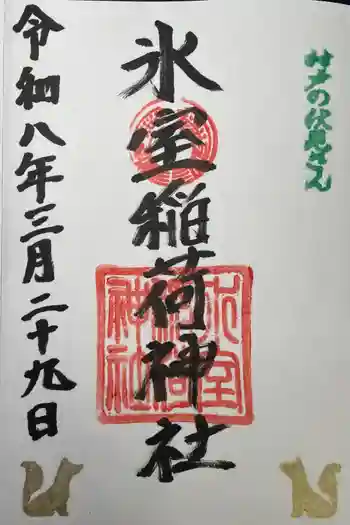 村の伏見さん
氷室稲荷神社
氷室稲荷神社
令和八年三月二十九日